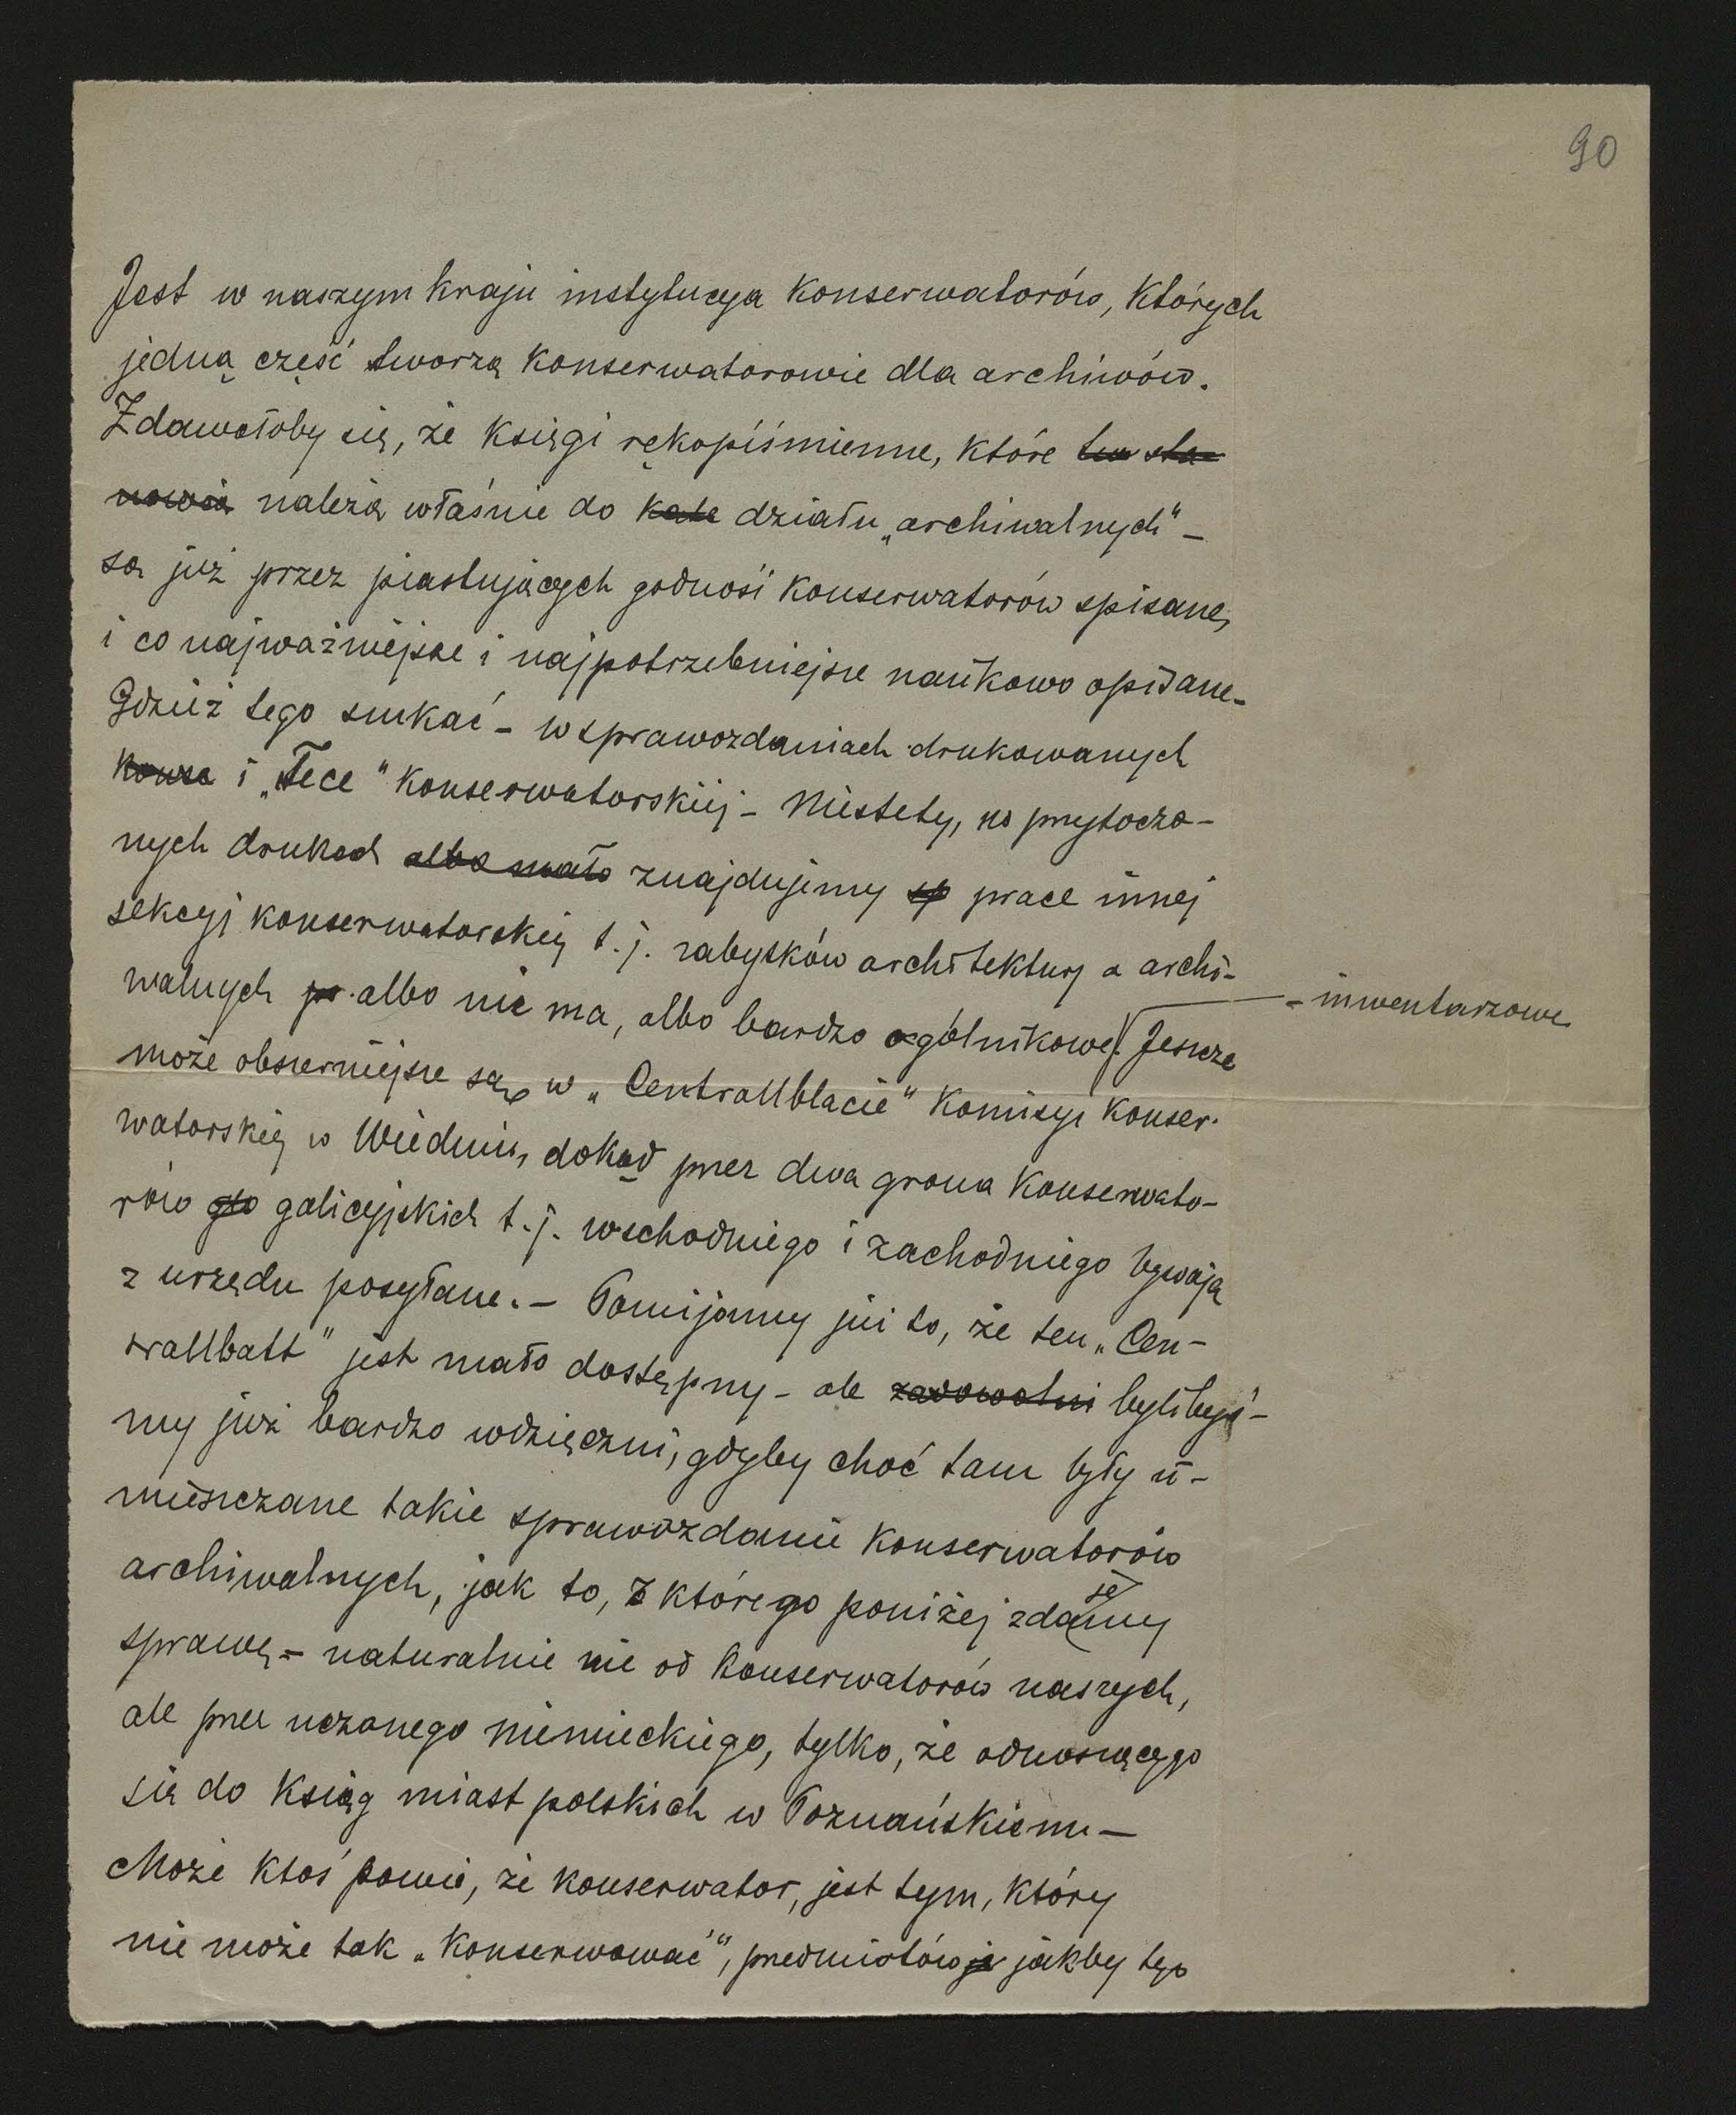 90
Jest w naszym kraju instytucya konserwatorów, których
jedną część tworzą konserwatorowie dla archiwów.
Zdawałoby się, że księgi rękopiśmienne, które two sta-
nowią należą właśnie do kate działu „archiwalnych" -
są już przez piastujących godność konserwatorów spisane,
i co najważniejsze i najpotrzebniejsze naukowo opisane -
Gdzież tego szukać - w sprawozdaniach drukowanych
konse i „Tece" konserwatorskiej - Niestety, w przytoczo-
nych drukach albo mało znajdujemy sp prace innej
sekcyj konserwatorskiej t. j. zabytków architektury a archi-
walnych pr. albo nie ma, albo bardzo ogólnikowe - inwentarzowe. Jeszcze
może obszerniejsze są w „Centrallblacie" Komisyi konser-
watorskiej w Wiedniu, dokąd przez dwa grona konserwato-
rów gto galicyjskich t. j. wschodniego i zachodniego bywają
z urzędu posyłane. - Pomijamy już to, że ten „Cen-
trallbatt" jest mało dostępny - ale zadowolni bylibyś-
my już bardzo wdzięczni, gdyby choć tam były u-
mieszczane takie sprawozdanie konserwatorów
archiwalnych, jak to, z którego poniżej zdajemy
sprawę - naturalnie nie od konserwatorów naszych,
ale przez uczonego niemieckiego, tylko, że odnoszącego
się do ksiąg miast polskich w Poznańskiem -
Może ktoś powie, że konserwator, jest tym, który
nie może tak „konserwować", przedmiotów je jakby tego